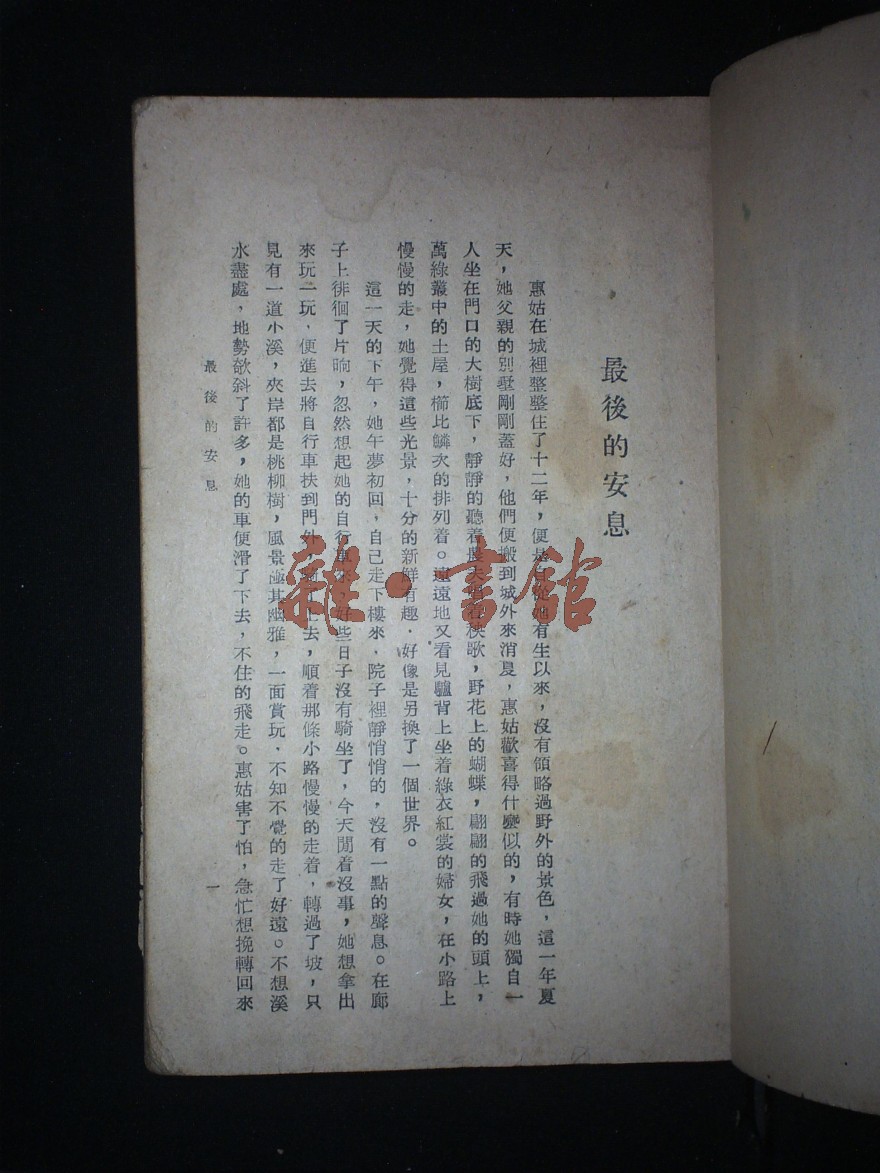 最後的安息
惠姑在城裡整整住了十二年，便是自從她有生以來，沒有領略過野外的景色，這一年夏
天，她父親的別墅剛剛蓋好，他們便搬到城外來消夏，惠姑歡喜得什麼似的，有時她獨自一
人坐在門口的大樹底下，靜靜的聽着農夫唱着秧歌，野花上的蝴蝶，翩翩的飛過她的頭上，
萬綠叢中的土屋，櫛比鱗次的排列着。遠遠地又看見驢背上坐着綠衣紅裳的婦女，在小路上
慢慢的走，她覺得這些光景，十分的新鮮有趣．好像是另換了一個世界。
這一天的下午，她午夢初回，自己走下樓來．院子裡靜悄悄的，沒有一點的聲息。在廊
子上徘徊了片晌，忽然想起她的自行車來，好些日子沒有騎坐了，今天閒着沒事，她想拿出
來玩一玩，便進去將自行車扶到門外，騎了上去，順着那條小路慢慢的走着，轉過了坡，只
見有一道小溪，夾岸都是桃柳樹，風景極其幽雅，一面賞玩．不知不覺的走了好遠。不想溪
水盡處，地勢欹斜了許多，她的車便滑了下去，不住的飛走。惠姑害了怕，急忙想挽轉回來
最後的安息
一
雜·書館